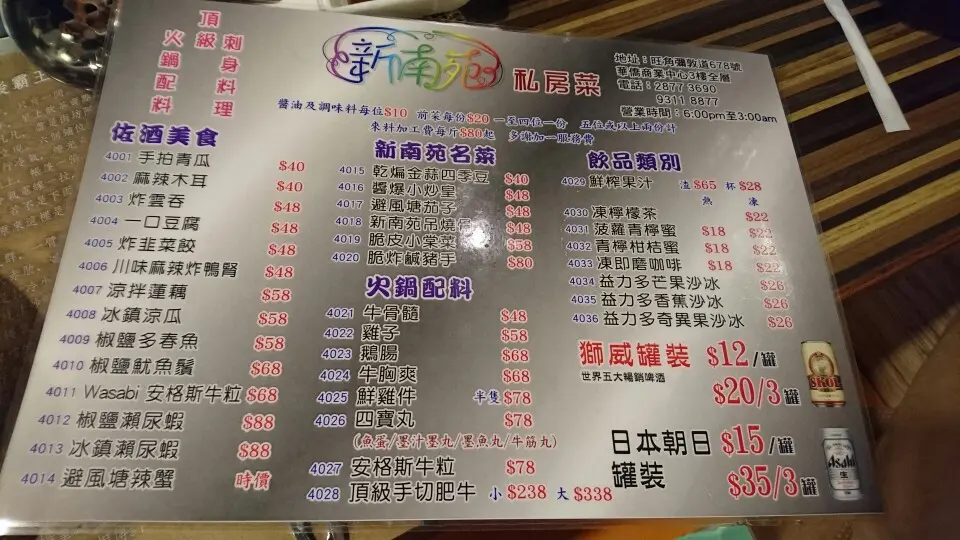 頂級刺身料理
火鍋配料
新南苑 私房菜
地址：旺角彌敦道678號
華僑商業中心3樓全層
電話：2877 3690
9311 8877
營業時間：6:00pm至3:00am
醬油及調味料每位$10 前菜每份$20 一至四位一份 五位或以上兩份計
來料加工費每斤$80起 多謝加一服務費
佐酒美食
4001 手拍青瓜 $40
4002 麻辣木耳 $40
4003 炸雲吞 $48
4004 一口豆腐 $48
4005 炸韭菜餃 $48
4006 川味麻辣炸鴨腎 $48
4007 涼拌蓮藕 $58
4008 冰鎮涼瓜 $58
4009 椒鹽多春魚 $58
4010 椒鹽魷魚鬚 $68
4011 Wasabi 安格斯牛粒 $68
4012 椒鹽瀨尿蝦 $88
4013 冰鎮瀨尿蝦 $88
4014 避風塘辣蟹 時價
新南苑名菜
4015 乾煸金蒜四季豆 $40
4016 醬爆小炒皇 $48
4017 避風塘茄子 $48
4018 新南苑吊燒 $48
4019 脆皮小棠菜 $58
4020 脆炸鹹豬手 $80
火鍋配料
4021 牛骨髓 $48
4022 雞子 $58
4023 鵝腸 $68
4024 牛胸爽 $68
4025 鮮雞件 半隻 $78
4026 四寶丸 $78
(魚蛋/墨汁墨丸/墨魚丸/牛筋丸)
4027 安格斯牛粒 $78
4028 頂級手切肥牛 小 $238 大 $338
飲品類別
4029 鮮榨果汁 渣 $65 杯 $28
熱 凍
4030 凍檸檬茶 $22
4031 菠蘿青檸蜜 $18 $22
4032 青檸柑桔蜜 $18 $22
4033 凍即磨咖啡 $18 $22
4034 益力多芒果沙冰 $26
4035 益力多香蕉沙冰 $26
4036 益力多奇異果沙冰 $26
獅威罐裝 $12/罐
世界五大暢銷啤酒
$20/3罐
SKOL
日本朝日罐裝 $15/罐
$35/3罐
Asahi
生